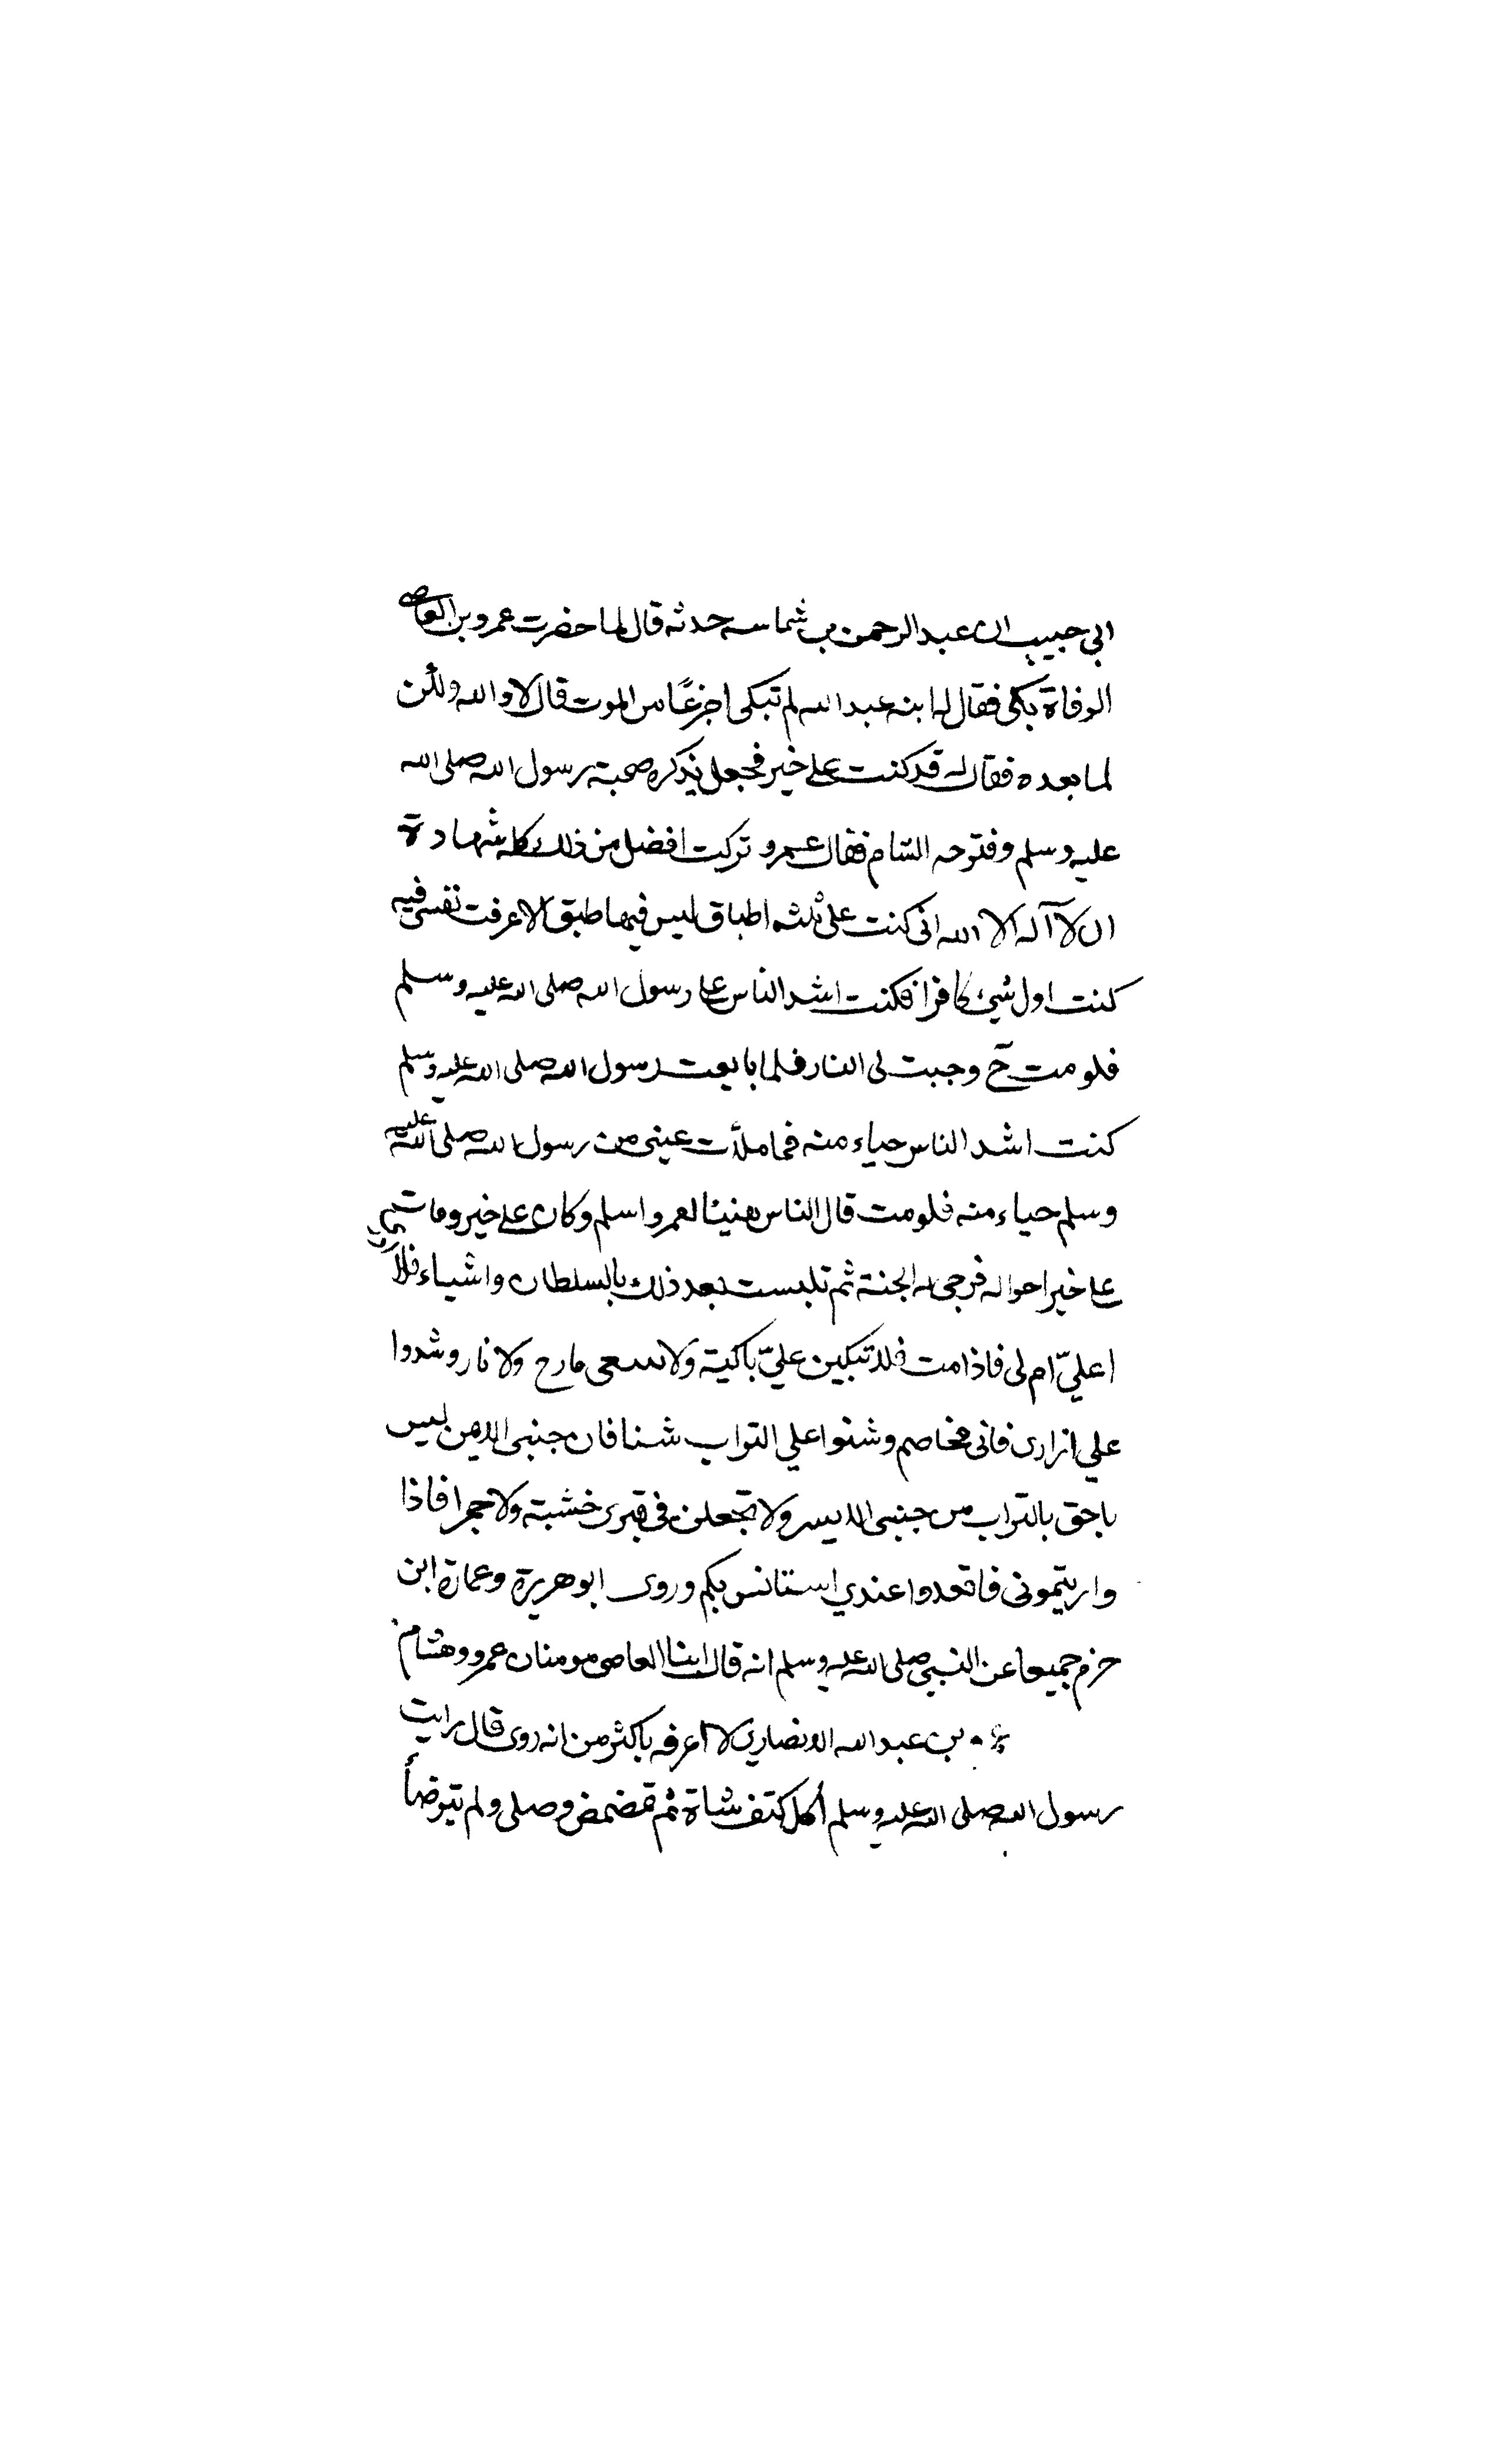 ابي حبيب ان عبد الرحمن بن شماسه حدثه قال لما حضرت عمرو بن العاص
الوفاة بكى فقال له ابنه عبد الله لم تبكى اجزعًا من الموت قال لا والله ولكن
لما بعده فقال له قد كنت على خير فجعل يذكره صحبة رسول الله صلى الله
عليه وسلم وفتوحه الشام فقال عمرو تركت افضل من ذلك كله شهادة
ان لا آله الا الله انى كنت على ثلثه اطباق ليس فيها طبق الا عرفت نفسى فيه
كنت اول شيئ كافرا فكنت اشد الناس على رسول الله صلى الله عليه وسلم
فلو مت ح وجبت لى النار فلما بايعت رسول الله صلى الله عليه وسلم
كنت اشد الناس حياء منه فما ملأت عينى من رسول الله صلى الله عليه
وسلم حياء منه فلو مت قال الناس هنيئا لعمرو اسلم وكان على خير ومات
على خير احواله فرجى له الجنة ثم تلبست بعد ذلك بالسلطان واشياء فلا ادرى
اعليّ ام لى فاذا مت فلا تبكين عليّ باكية ولا سعى مادح ولا نار وشدوا
علي ازارى فانى مخاصم وشنوا علي التراب شنا فان جنبى الايمن ليس
باحق بالتراب من جنبى الايسر ولا تجعلن فى قبرى خشبة ولا حجرا فاذا
واريتمونى فاقعدوا عندي استانس بكم وروى ابو هريرة وعمارة ابن
حزم جميعا عن النبي صلى الله عليه وسلم انه قال ابنا العاصى مومنان عمرو وهشام
بن عبد الله الانصاري لا اعرفه باكثر من انه روى قال رايت
رسول الله صلى الله عليه وسلم أكل كتف شاة ثم تمضمض وصلى ولم يتوضأ